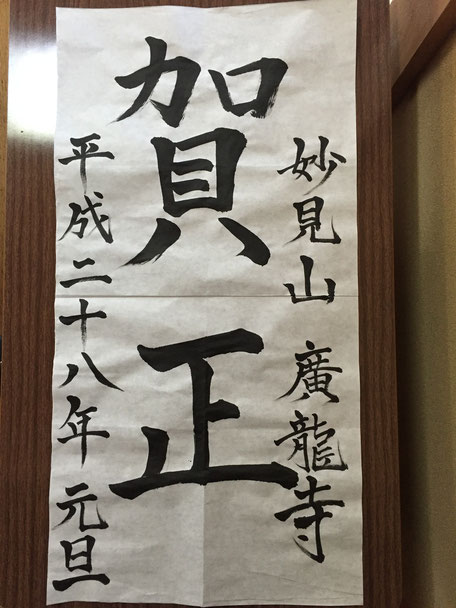 妙見山 廣龍寺
賀正
平成二十八年 元旦